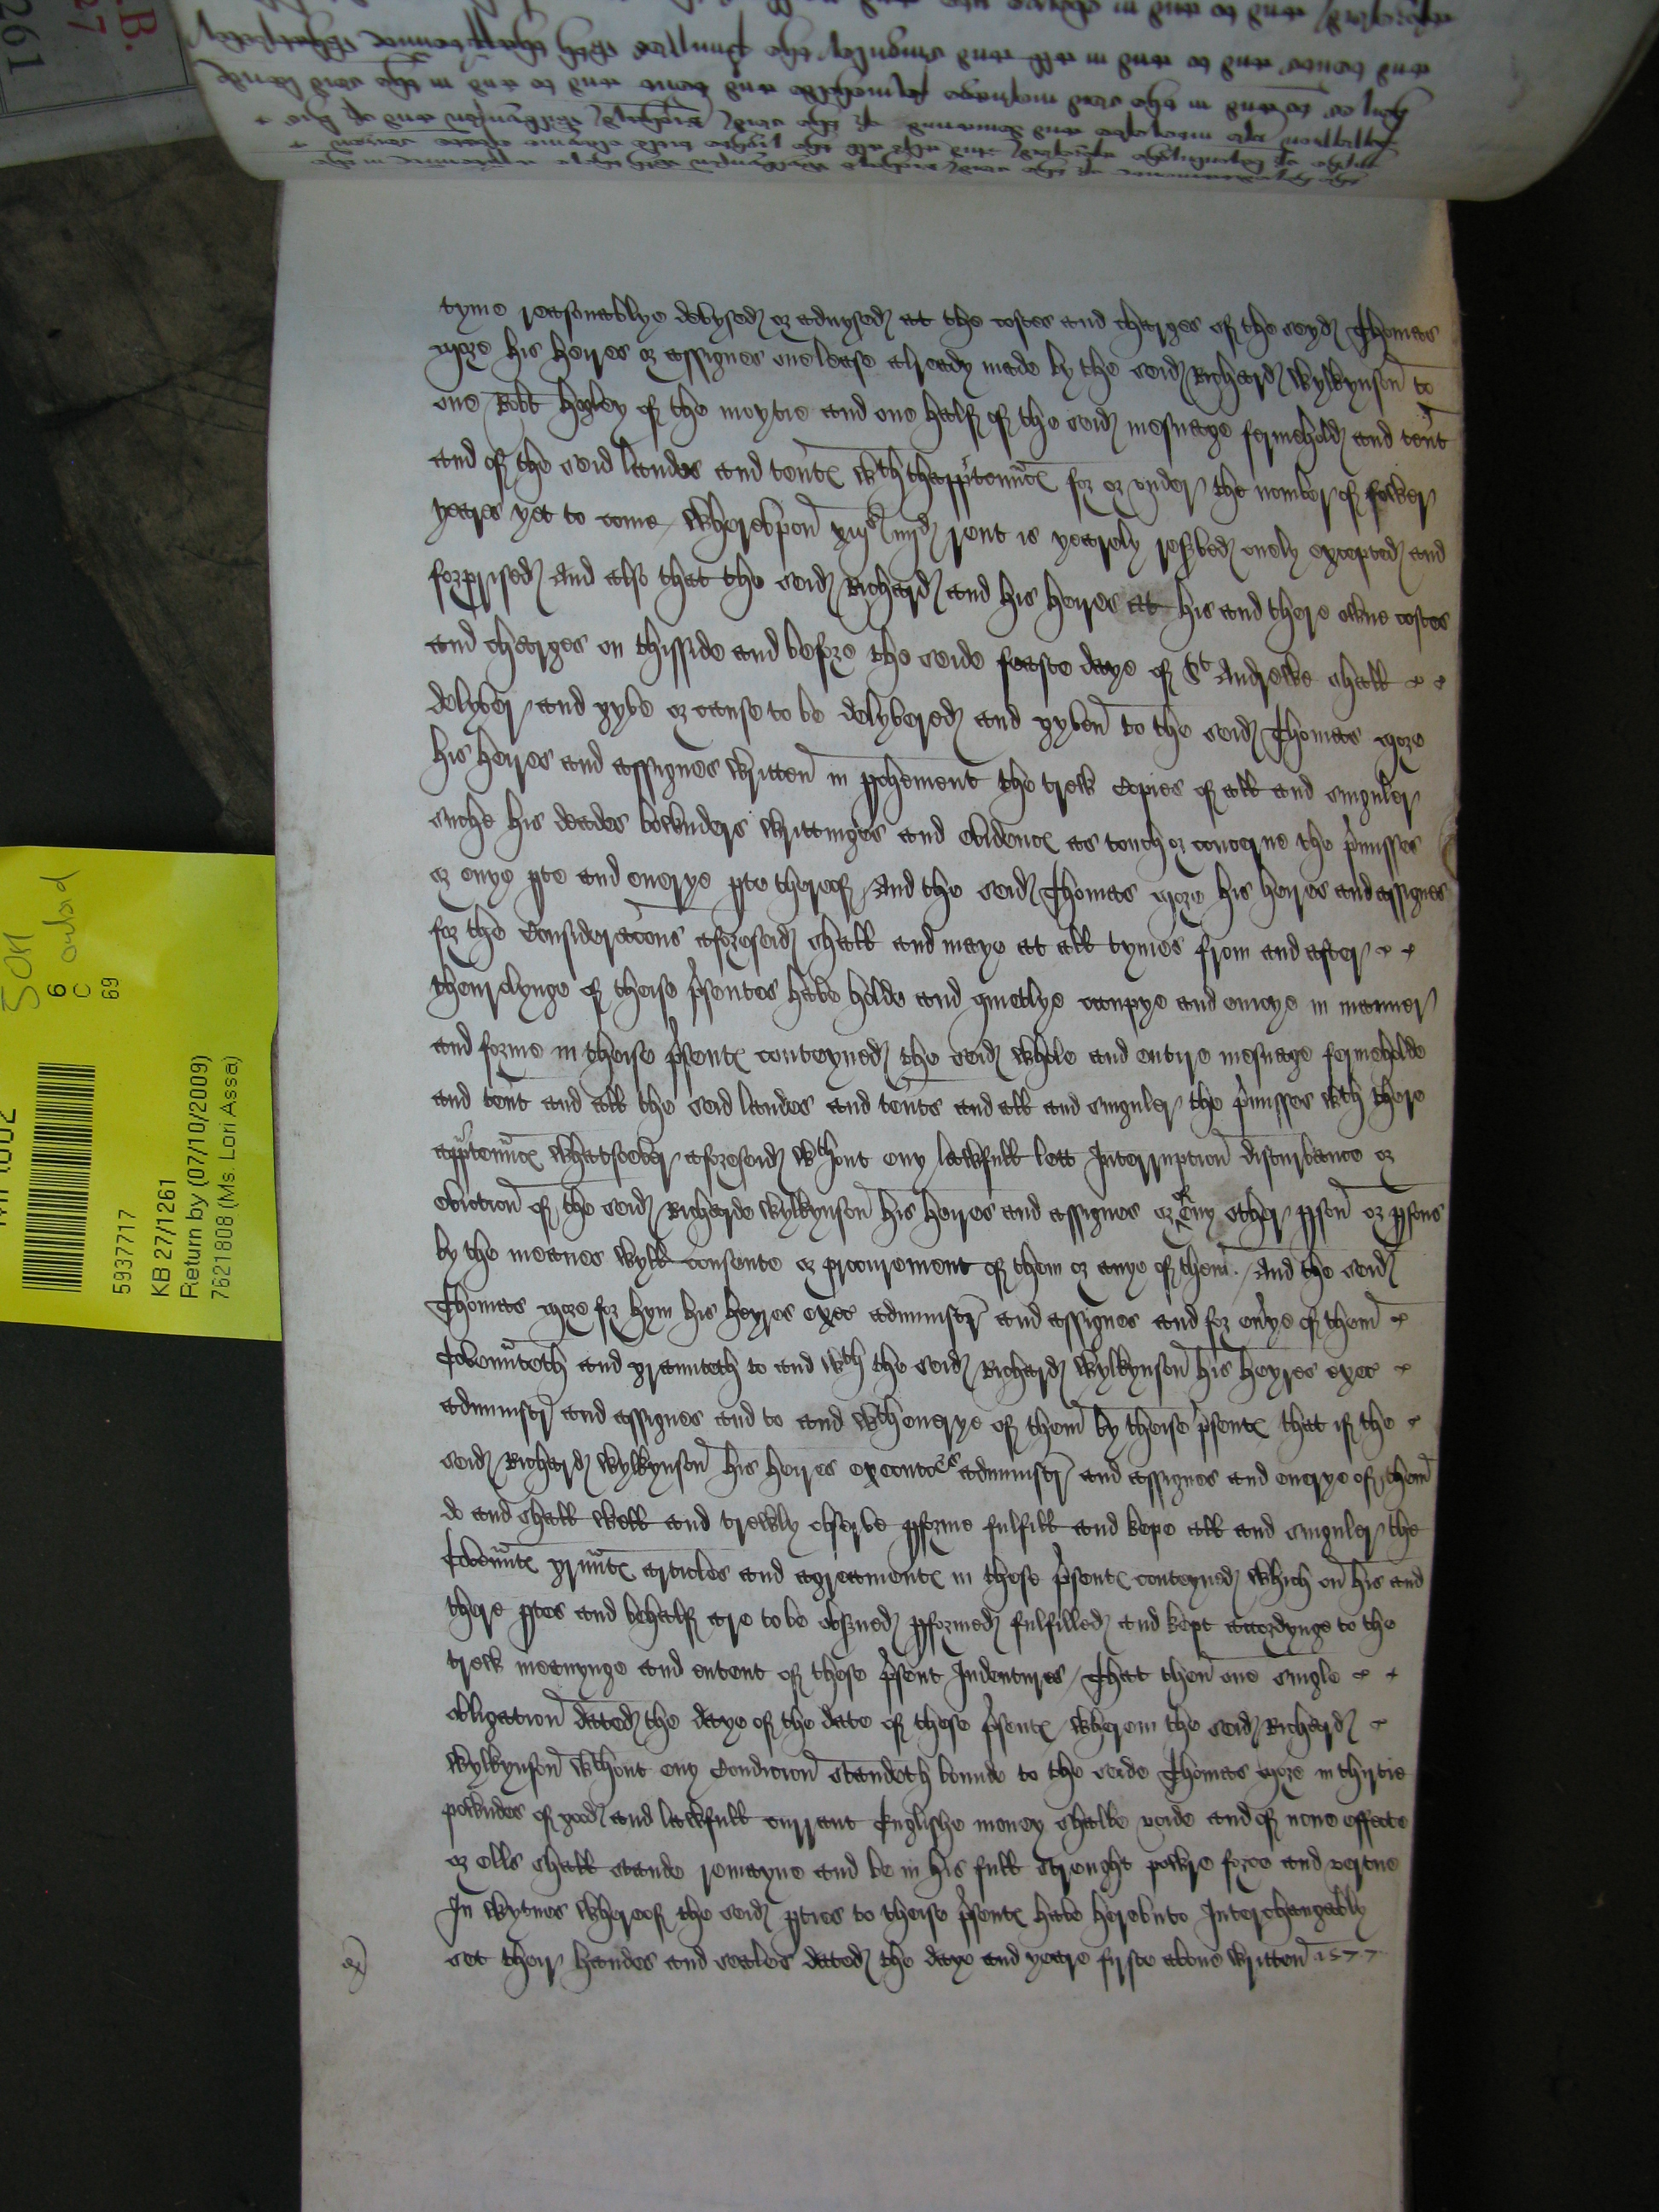 tyme reasonablye devysed or advysed at the costes and charges of the seyd Thomas
More his heires or assignes one lease alredy made by the seid Richard Wylkynson to
one Robt Hogley of the moytie and one half of the seid mesuage fermehold and tent
and of the seid landes and tentes wth thapptenntes for or under the nomber of fower
yeares yet to come / Wherevpon xiijs iiijd rent is yearely resved onely excepted and
forprised And also that the seid Richard and his heires at his and there owne costes
and charges on thisside and before the seide feaste daye of St Andrewe shall
delyver and gyve or cause to be delyvered and gyven to the seid Thomas More
his heires and assignes written in pchement the trew Copies of all and singuler
suche his deades bownders writtinges and evidences as touch or concerne the pmisses
or enye pte and euerye pte thereof / And the seid Thomas More his heires and assignes
for the Consideracons aforeseid shall and maye at all tymes from and after
thenrolynge of theise psentes have holde and quietlye occupye and enioye in manner
and forme in theise psentes conteyned the seid whole and entire mesuage fermeholde
and tent and all the seid landes and tents and all and singuler the pmisses wth there
apptenntes whatsoever aforeseid wthout eny lawfull lett Interruption disturbance or
eviction of the seid Richarde Wylkynson his heires and assignes or of eny other pson or psons
by the meanes wyll consente or procurement of them or anye of them. / And the seid
Thomas More for hym his heyres exec administr and assignes and for euye of them
Covennteth and graunteth to and wth the seid Richard Wylkynson his heyres exec
administr and assignes and to and wth euerye of them by theise psentes that if the
seid Richard Wylkynson his heires executors administr and assignes and euerye of them
do and shall well and trewly observe pforme fulfill and kepe all and singuler the
Covenntes grauntes articles and agreamentes in these psentes conteyned which on his and
there ptes and behalf are to be obsued pformed fulfilled and kept accordynge to the
trew meanynge and entent of these psent Indentures / That then one single
obligation dated the daye of the date of these psentes / wherein the seid Richard
Wylkynson wthout eny Condicion standeth bounde to the seide Thomas More in thirtie
powndes of good and lawfull currant Englishe money shalbe voide and of none effecte
or ells shall stande remayne and be in his full strenght powre force and vertue
In Wytnes whereof the seid pties to theise psentes have herevnto Interchangably
set their handes and seales dated the daye and yeare firste above written 1577
5937717
KB 27/1261
Return by (07/10/2009)
7621808 (Ms. Lori Assa)
6
C
69